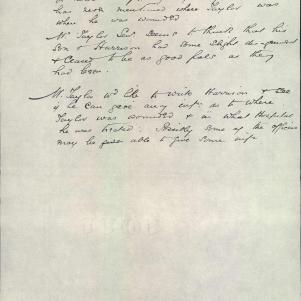 has not mentioned where Taylor was
when he was wounded
Mr Taylor Snr seems to think that his
Son & Harrison had some slight disagreement
& ceased to be as good pals as they
had been.
Mr. Taylor wd like to write Harrison & see
if he can give any infn as to where
Taylor was wounded & in what Hospital
he was treated. Possibly some of the officers
may be able to give some infn